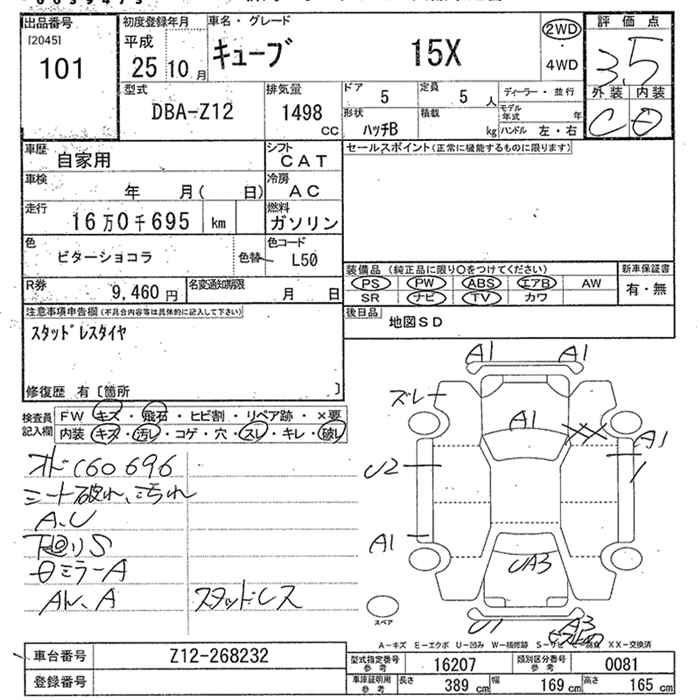 出品番号
[2045]
101
初度登録年月
平成
25 10 月
車名・グレード
キューブ 15X
2WD
・
4WD
評価点
3.5
外装 内装
C D
型式
DBA-Z12
排気量
1498 CC
ドア
5
定員
5 人
ディーラー・並行
形状
ハッチB
積載
kg
モデル年式 年
ハンドル 左・右
車歴
自家用
シフト
CAT
車検
年 月( 日)
冷房
AC
走行
16万0千695 km
燃料
ガソリン
色
ビターショコラ
色替
色コード
L50
R券
9,460 円
名変通知期限
月 日
セールスポイント(正常に機能するものに限ります)
装備品 (純正品に限り○をつけてください)
PS PW ABS エアB AW
SR ナビ TV カワ
新車保証書
有・無
後日品
地図SD
注意事項申告欄(不具合内容等は具体的に記入して下さい)
スタッドレスタイヤ
修復歴 有 [箇所 ]
検査員記入欄
FW キズ・飛石・ヒビ割・リペア跡・×要
内装 キズ・汚レ・コゲ・穴・スレ・キレ・破レ
オド160696
シート破れ、汚れ
A.U
下回りS
ミラーA
A
スタッドレス
A1 A1
ズレ
A1
XX
A1
U2
A1
UA3
U1
A3
スペア
A-キズ E-エクボ U-凹み W-補修跡 S-サビ C-腐食 XX-交換済
車台番号
Z12-268232
登録番号
型式指定番号 参考
16207
類別区分番号 参考
0081
車庫証明用 参考
長さ 389 cm 幅 169 cm 高さ 165 cm